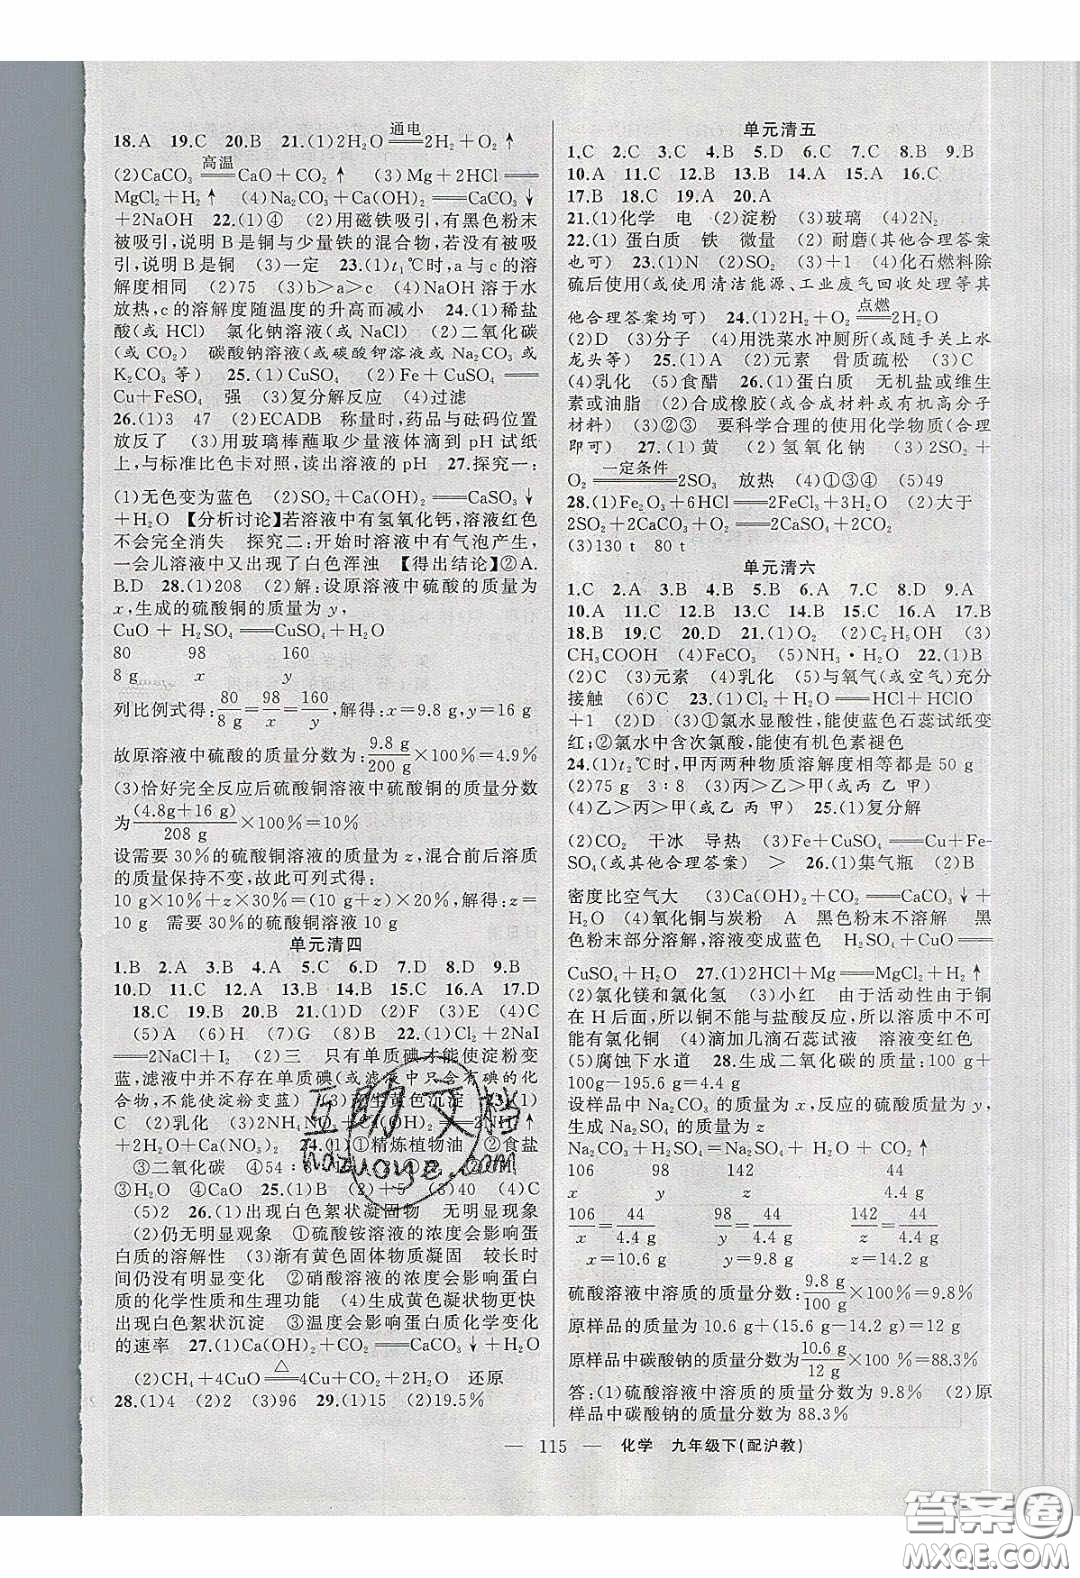 18.A 19.C 20.B 21.(1)2H₂O 通电 2H₂+O₂↑
(2)CaCO₃ 高温 CaO+CO₂↑ (3)Mg+2HCl══
MgCl₂+H₂↑ (4)Na₂CO₃+Ca(OH)₂══CaCO₃↓
+2NaOH 22.(1)④ (2)用磁铁吸引,有黑色粉末
被吸引,说明B是铜与少量铁的混合物,若没有被吸
引,说明B是铜 (3)一定 23.(1)t₁℃时,a与c的溶
解度相同 (2)75 (3)b>a>c (4)NaOH溶于水
放热,c的溶解度随温度的升高而减小 24.(1)稀盐
酸(或HCl) 氯化钠溶液(或NaCl) (2)二氧化碳
(或CO₂) 碳酸钠溶液(或碳酸钾溶液或Na₂CO₃或
K₂CO₃等) 25.(1)CuSO₄ (2)Fe+CuSO₄══
Cu+FeSO₄ 强 (3)复分解反应 (4)过滤
26.(1)3 47 (2)ECADB 称量时,药品与砝码位置
放反了 (3)用玻璃棒蘸取少量液体滴到pH试纸
上,与标准比色卡对照,读出溶液的pH 27.探究一:
(1)无色变为蓝色 (2)SO₂+Ca(OH)₂══CaSO₃↓
+H₂O 【分析讨论】若溶液中有氢氧化钙,溶液红色
不会完全消失 探究二:开始时溶液中有气泡产生,
一会儿溶液中又出现了白色浑浊 【得出结论】②A.
B.D 28.(1)208 (2)解:设原溶液中硫酸的质量为
x,生成的硫酸铜的质量为y,
CuO+H₂SO₄══CuSO₄+H₂O
80 98 160
8 g x y
列比例式得:80/8 g=98/x=160/y,解得:x=9.8 g,y=16 g
故原溶液中硫酸的质量分数为:9.8 g/200 g×100%=4.9%
(3)恰好完全反应后硫酸铜溶液中硫酸铜的质量分数
为(4.8g+16 g)/208 g×100%=10%
设需要30%的硫酸铜溶液的质量为z,混合前后溶质
的质量保持不变,故此可列式得:
10 g×10%+z×30%=(10 g+z)×20%,解得:z=
10 g 需要30%的硫酸铜溶液10 g
单元清四
1.B 2.A 3.B 4.A 5.C 6.D 7.D 8.D 9.B
10.D 11.C 12.A 13.B 14.B 15.C 16.A 17.D
18.C 19.C 20.B 21.(1)D (2)F (3)E (4)C
(5)A (6)H (7)G (8)B 22.(1)Cl₂+2NaI
══2NaCl+I₂ (2)三 只有单质碘才能使淀粉变
蓝,滤液中并不存在单质碘(或滤液中只含有碘的化
合物,不能使淀粉变蓝) (3)产生黄色沉淀 23.(1)
C (2)乳化 (3)2NH₄NO₃+Ca(OH)₂══2NH₃↑
+2H₂O+Ca(NO₃)₂ 24.(1)①精炼植物油 ②食盐
③二氧化碳 ④54∶8
③H₂O ④CaO 25.(1)B (2)+5 (3)40 (4)C
(5)2 26.(1)出现白色絮状凝固物 无明显现象
(2)仍无明显现象 ①硫酸铵溶液的浓度会影响蛋
白质的溶解性 (3)渐有黄色固体物质凝固 较长时
间仍没有明显变化 ②硝酸溶液的浓度会影响蛋白
质的化学性质和生理功能 (4)生成黄色凝状物更快
出现白色絮状沉淀 ③温度会影响蛋白质化学变化
的速率 27.(1)Ca(OH)₂+CO₂══CaCO₃↓+H₂O
(2)CH₄+4CuO △ 4Cu+CO₂+2H₂O 还原
28.(1)4 (2)2 (3)96 29.(1)15 (2)19.5%
单元清五
1.C 2.C 3.C 4.B 5.D 6.C 7.C 8.B 9.B
10.A 11.C 12.D 13.B 14.A 15.A 16.C
17.B 18.C 19.A 20.A
21.(1)化学 电 (2)淀粉 (3)玻璃 (4)2N₂
22.(1)蛋白质 铁 微量 (2)耐磨(其他合理答案
也可) 23.(1)N (2)SO₂ (3)+1 (4)化石燃料除
硫后使用(或使用清洁能源、工业废气回收处理等其
他合理答案均可) 24.(1)2H₂+O₂ 点燃 2H₂O
(2)D (3)分子 (4)用洗菜水冲厕所(或随手关上水
龙头等) 25.(1)A (2)元素 骨质疏松 (3)C
(4)乳化 (5)食醋 26.(1)蛋白质 无机盐或维生
素或油脂 (2)合成橡胶(或合成材料或有机高分子
材料) (3)②③ 要科学合理的使用化学物质(合理
即可) 27.(1)黄 (2)氢氧化钠 (3)2SO₂+
O₂ 一定条件 2SO₃ 放热 (4)①③④ (5)49
28.(1)Fe₂O₃+6HCl══2FeCl₃+3H₂O (2)大于
2SO₂+2CaCO₃+O₂══2CaSO₄+2CO₂
(3)130 t 80 t
单元清六
1.C 2.A 3.B 4.B 5.A 6.C 7.A 8.D 9.A
10.A 11.C 12.B 13.C 14.B 15.C 16.A 17.B
18.B 19.D 20.A 21.(1)O₂ (2)C₂H₅OH (3)
CH₃COOH (4)FeCO₃ (5)NH₃·H₂O 22.(1)B
(2)C (3)元素 (4)乳化 (5)与氧气(或空气)充分
接触 (6)C 23.(1)Cl₂+H₂O══HCl+HClO
+1 (2)D (3)①氯水显酸性,能使蓝色石蕊试纸变
红;②氯水中含次氯酸,能使有机色素褪色
24.(1)t₂℃时,甲丙两种物质溶解度相等都是50 g
(2)75 g 3∶8 (3)丙>乙>甲(或丙 乙 甲)
(4)乙>丙>甲(或乙 丙 甲) 25.(1)复分解
(2)CO₂ 干冰 导热 (3)Fe+CuSO₄══Cu+Fe-
SO₄(或其他合理答案) > 26.(1)集气瓶 (2)B
密度比空气大 (3)Ca(OH)₂+CO₂══CaCO₃↓+
H₂O (4)氧化铜与炭粉 A 黑色粉末不溶解 黑
色粉末部分溶解,溶液变成蓝色 H₂SO₄+CuO══
CuSO₄+H₂O 27.(1)2HCl+Mg══MgCl₂+H₂↑
(2)氯化镁和氯化氢 (3)小红 由于活动性由于铜
在H后面,所以铜不能与盐酸反应,所以溶液中不可
能有氯化铜 (4)滴加几滴石蕊试液 溶液变红色
(5)腐蚀下水道 28.生成二氧化碳的质量:100 g+
100g-195.6 g=4.4 g
设样品中Na₂CO₃的质量为x,反应的硫酸质量为y,
生成Na₂SO₄的质量为z
Na₂CO₃+H₂SO₄══Na₂SO₄+H₂O+CO₂↑
106 98 142 44
x y z 4.4 g
106/x=44/4.4 g 98/y=44/4.4 g 142/z=44/4.4 g
x=10.6 g y=9.8 g z=14.2 g
硫酸溶液中溶质的质量分数:9.8 g/100 g×100%=9.8%
原样品的质量为10.6 g+(15.6 g-14.2 g)=12 g
原样品中碳酸钠的质量分数10.6 g/12 g×100%=88.3%
答:(1)硫酸溶液中溶质的质量分数为9.8% (2)原
样品中碳酸钠的质量分数为88.3%
— 115 — 化学 九年级下(配沪教)
互助文档
hazuoye.com
答案圈
MXQE.COM